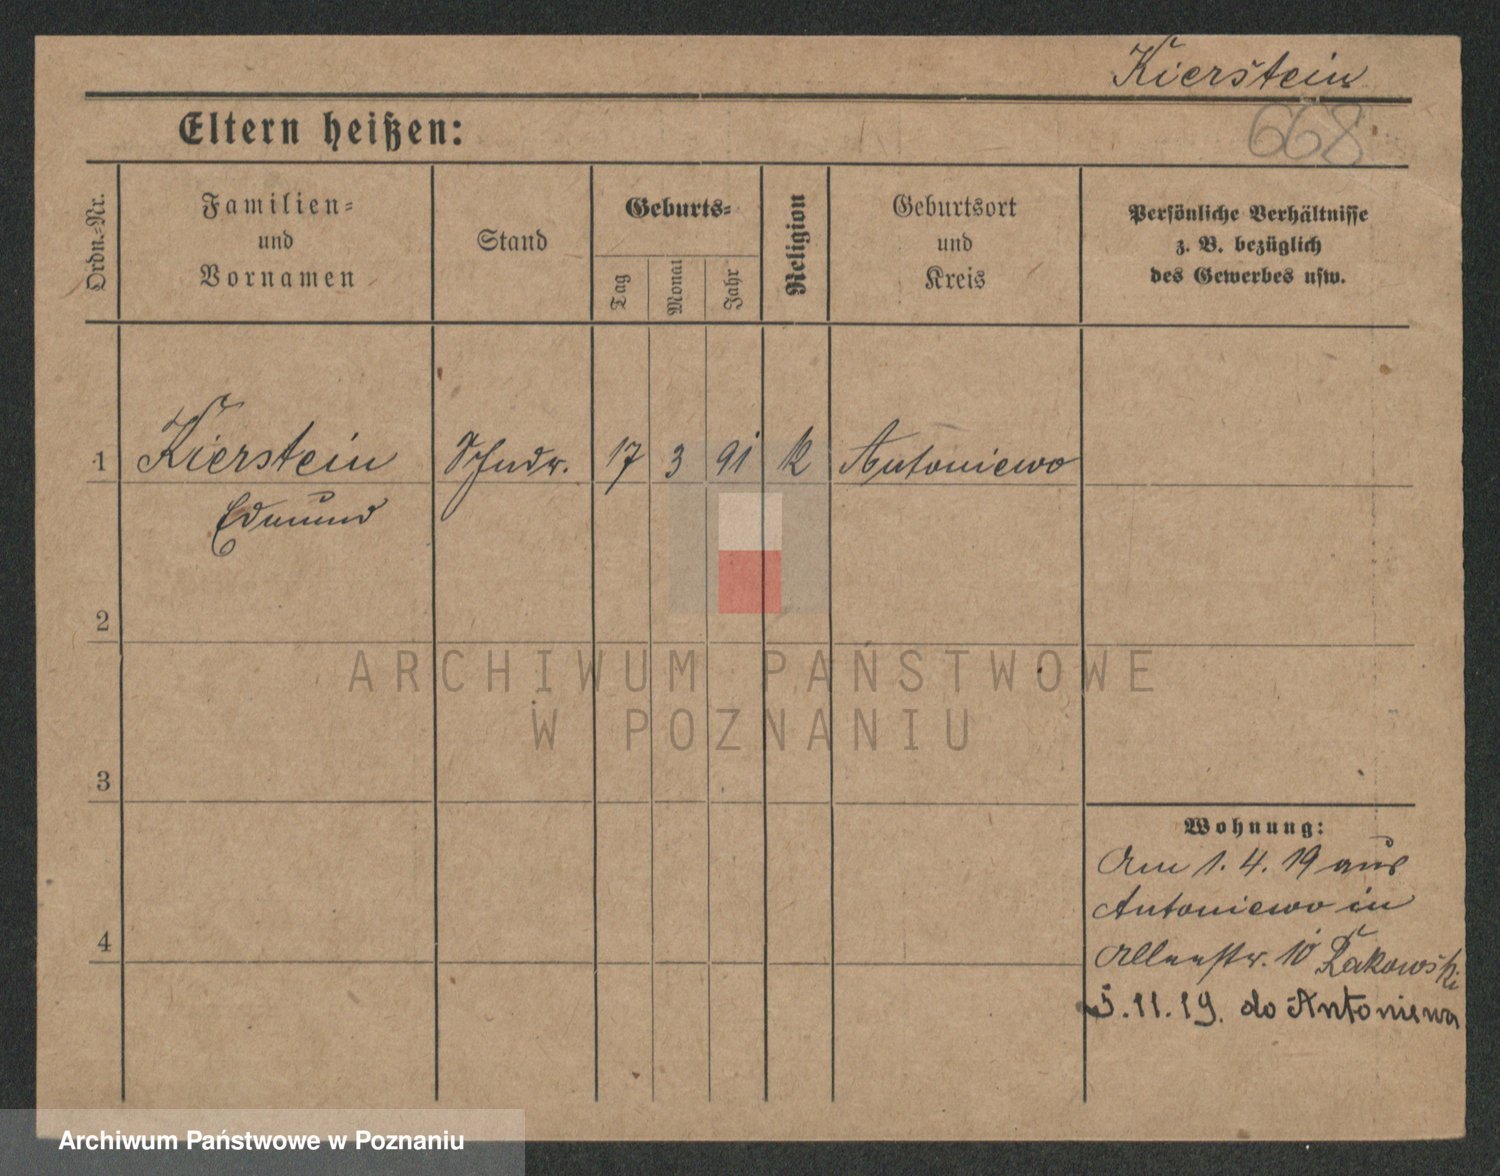 Kierstein
668
Eltern heißen:
Ordn.-Nr.
Familien-
und
Vornamen
Stand
Geburts-
Tag
Monat
Jahr
Religion
Geburtsort
und
Kreis
Persönliche Verhältnisse
z. B. bezüglich
des Gewerbes usw.
1 Kierstein Schndr. 17 3 91 k Antoniewo
Edmund
2
3
4
ARCHIWUM PAŃSTWOWE
W POZNANIU
Wohnung:
Am 1. 4. 19 aus
Antoniewo in
10 Żakowski
5.11.19. do Antoniewa
Archiwum Państwowe w Poznaniu